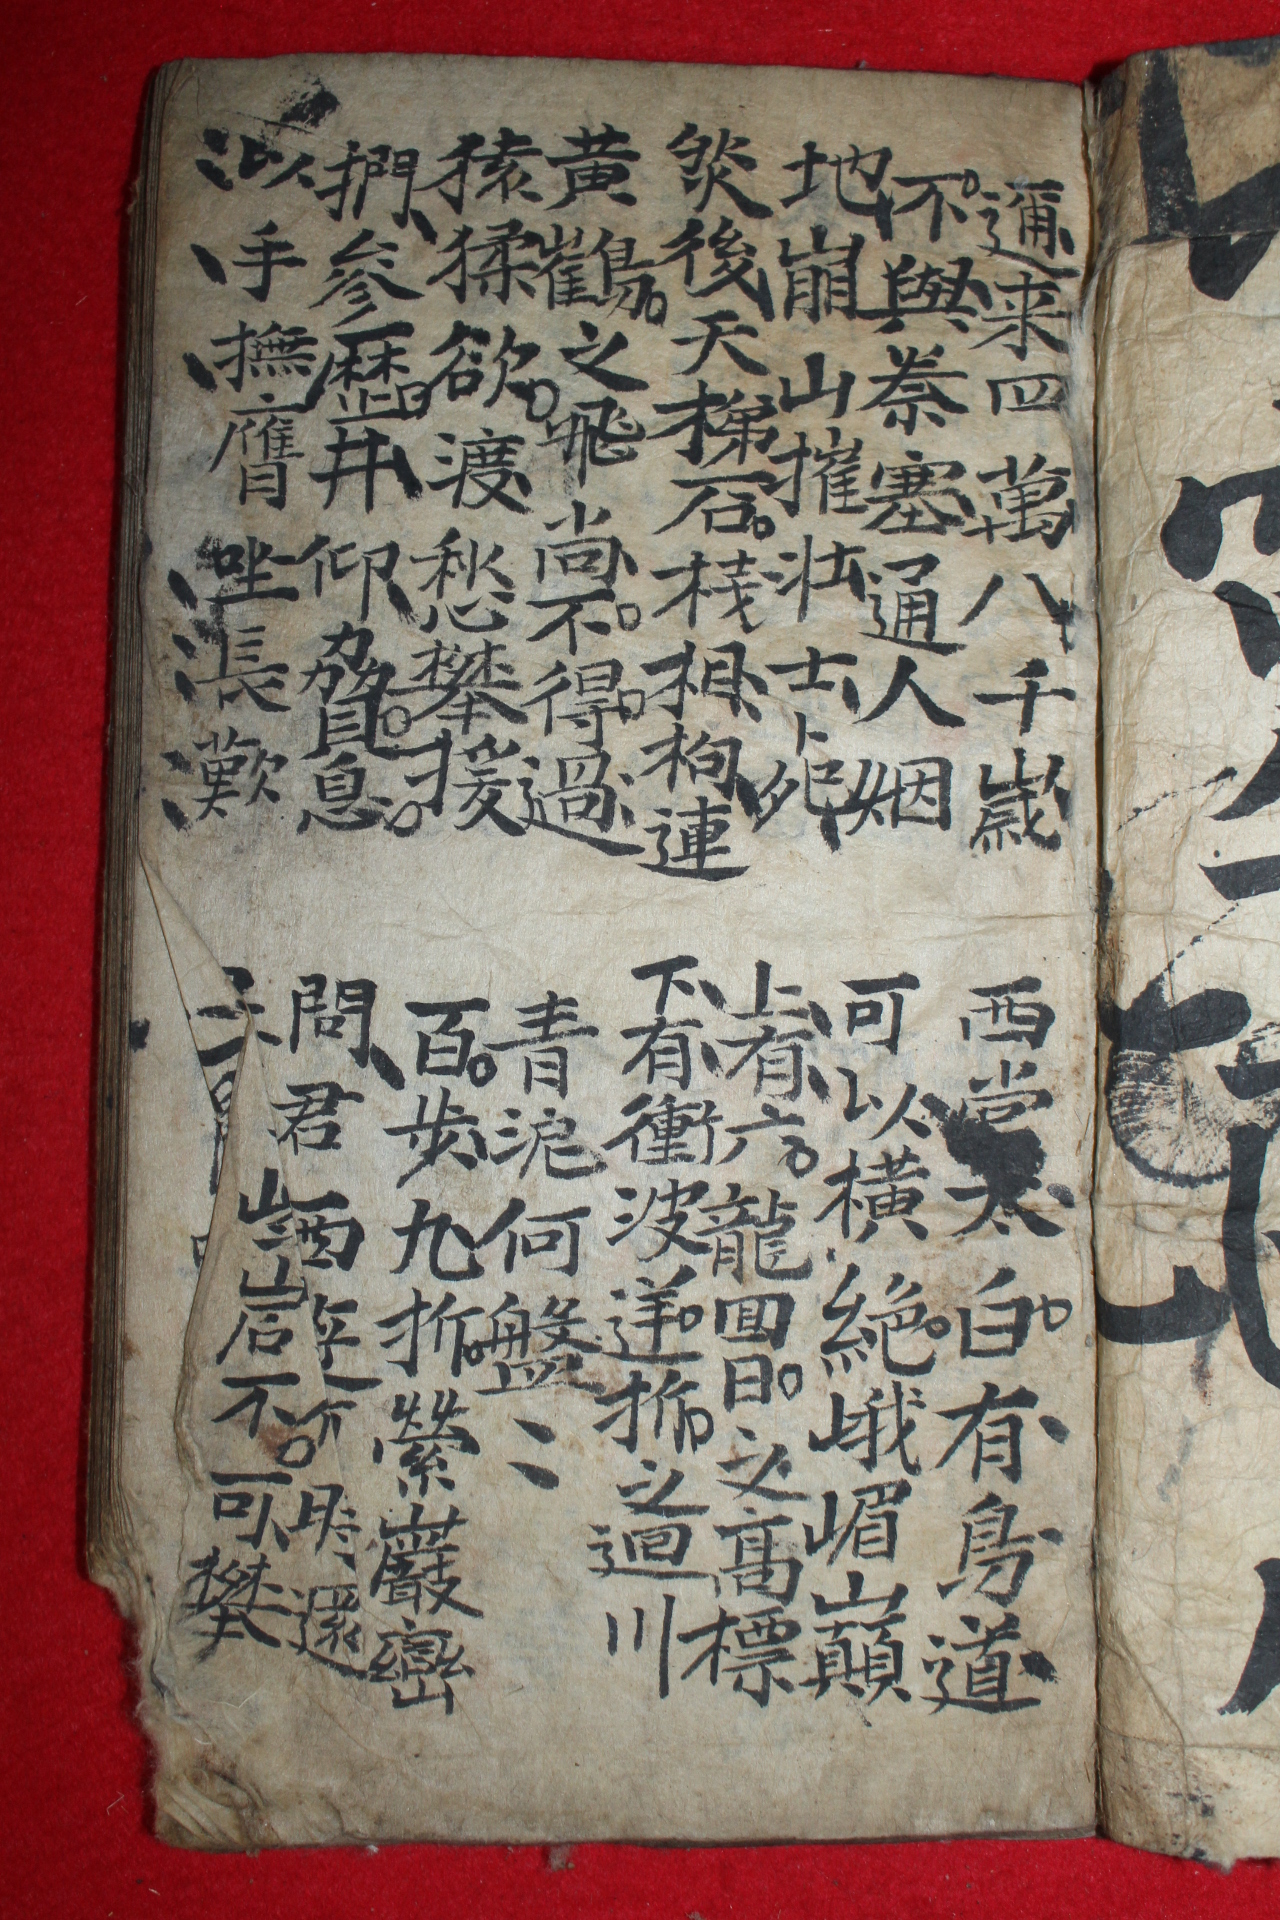 邇来四萬八千歲
不與秦塞通人烟
西當太白有鳥道
可以橫絶峨嵋巔
地崩山摧壯士死
然後天梯石栈相枸連
上有六龍回日之高標
下有衝波逆折之迴川
黃鶴之飛尚不得過
猿猱欲渡愁攀援
青泥何盤〻
百步九折縈巖巒
捫參歷井仰脅息
以手撫膺坐長歎
問君西遊何時還
岩不可攀